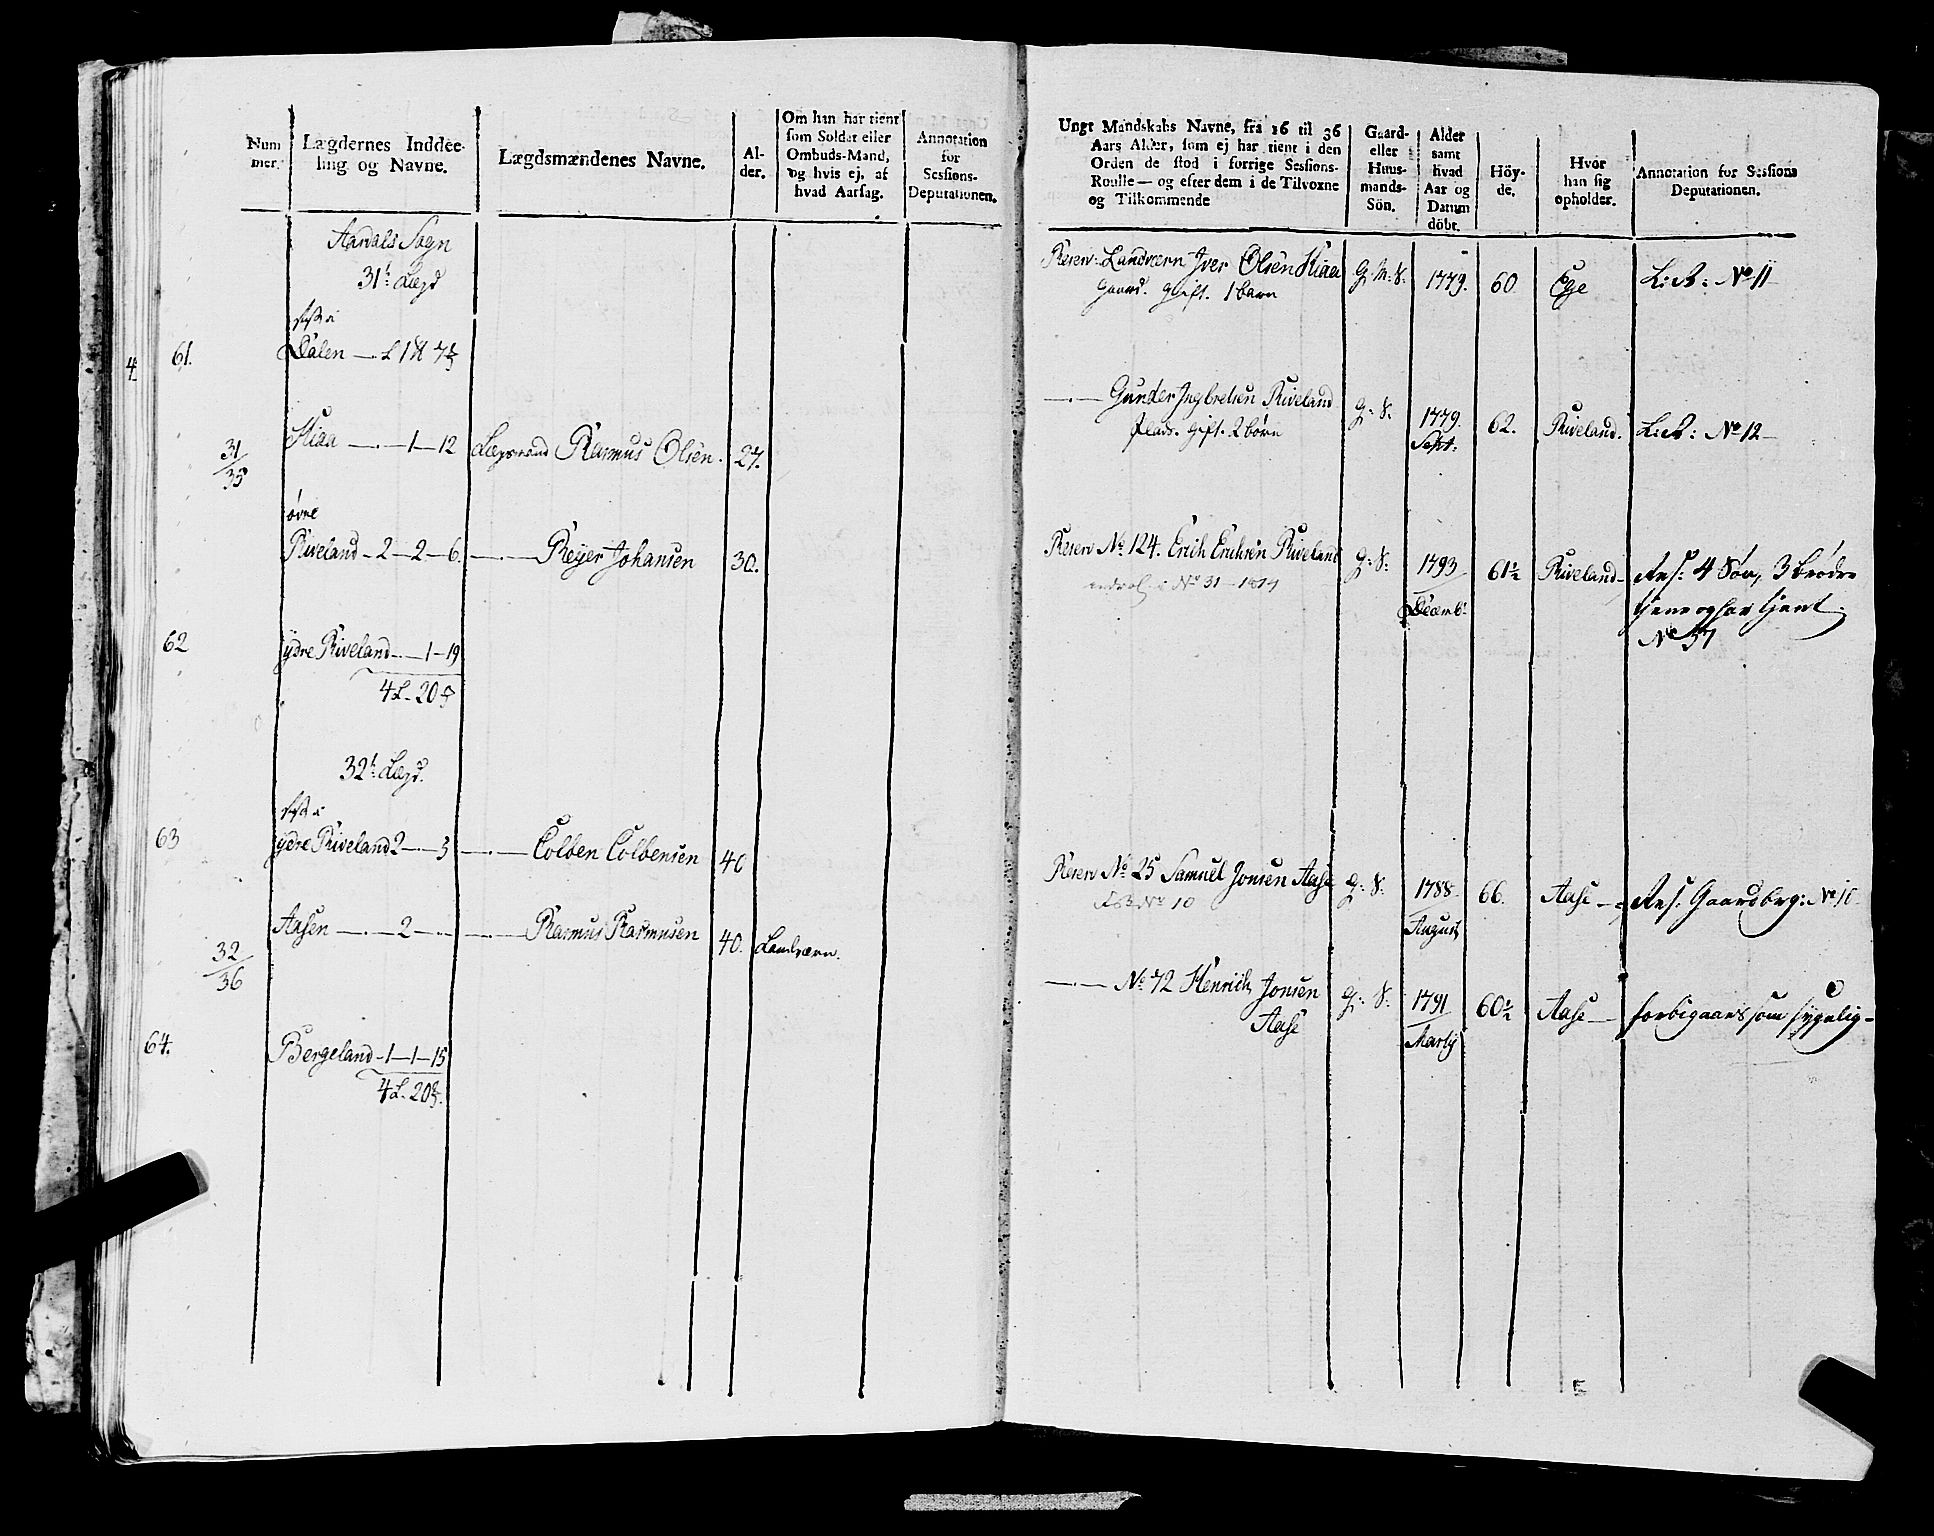 Num
mer.
Lægdernes Inddee-
ling og Navne.
Lægdsmændenes Navne.
Al-
der.
Om han har tient
som Soldat eller
Ombuds-Mand,
og hvis ej, af
hvad Aarsag.
Annotation
for
Sessions-
Deputationen.
Aardals Sogn
31te Lægd
61.
Dalen
4
Kiaa — 1 — 12
Rasmus Olsen.
27.
31/35
øvre
Riveland - 2 — 2 — 6.
Reyer Johansen
30.
62
ydre Riveland — 1 — 19
32te Lægd.
63
ydre Riveland 2 — 3
Colben Colbensen
40
Aasen — 2
Rasmus Rasmusen
40.
Landværn.
32/36
64.
Bergeland - 1 — 1 — 15
Ungt Mandskabs Navne, fra 16 til 36
Aars Alder, som ej har tient i den
Orden de stod i forrige Sessions-
Roulle — og efter dem i de Tilvoxne
og Tilkommende
Gaard-
eller
Huus-
mands-
Sön.
Alder
samt
hvad
Aar og
Datum
döbt.
Höy-
de.
Hvor
han sig
opholder.
Annotation for Sessions
Deputationen.
Reserv: Landværn Iver Olsen Kiaa
Gaard. gift. 1 barn
G: M: S:
1779.
60
Ege
L: R: No 11
Gunder Ingbretsen Riveland
Plads. gift. 2 børn
G: S:
1779.
Sept:
62.
Riveland.
L: R: No 12
Reserv No 124. Erich Erichsen Riveland
No 31 - 1814
G: S:
1793
Decemb:
61½
Riveland
4 Søn, 3 brødre
tjene og har tjent.
No 37
Reserv No 25 Samuel Jonsen Aase
No 10
G: S:
1788
August
66.
Aase
Gaardbrg: No 10
No 72 Henrich Jonsen
Aase
G: S:
1791
Marty
60½
Aase
forbigaaes som sygelig